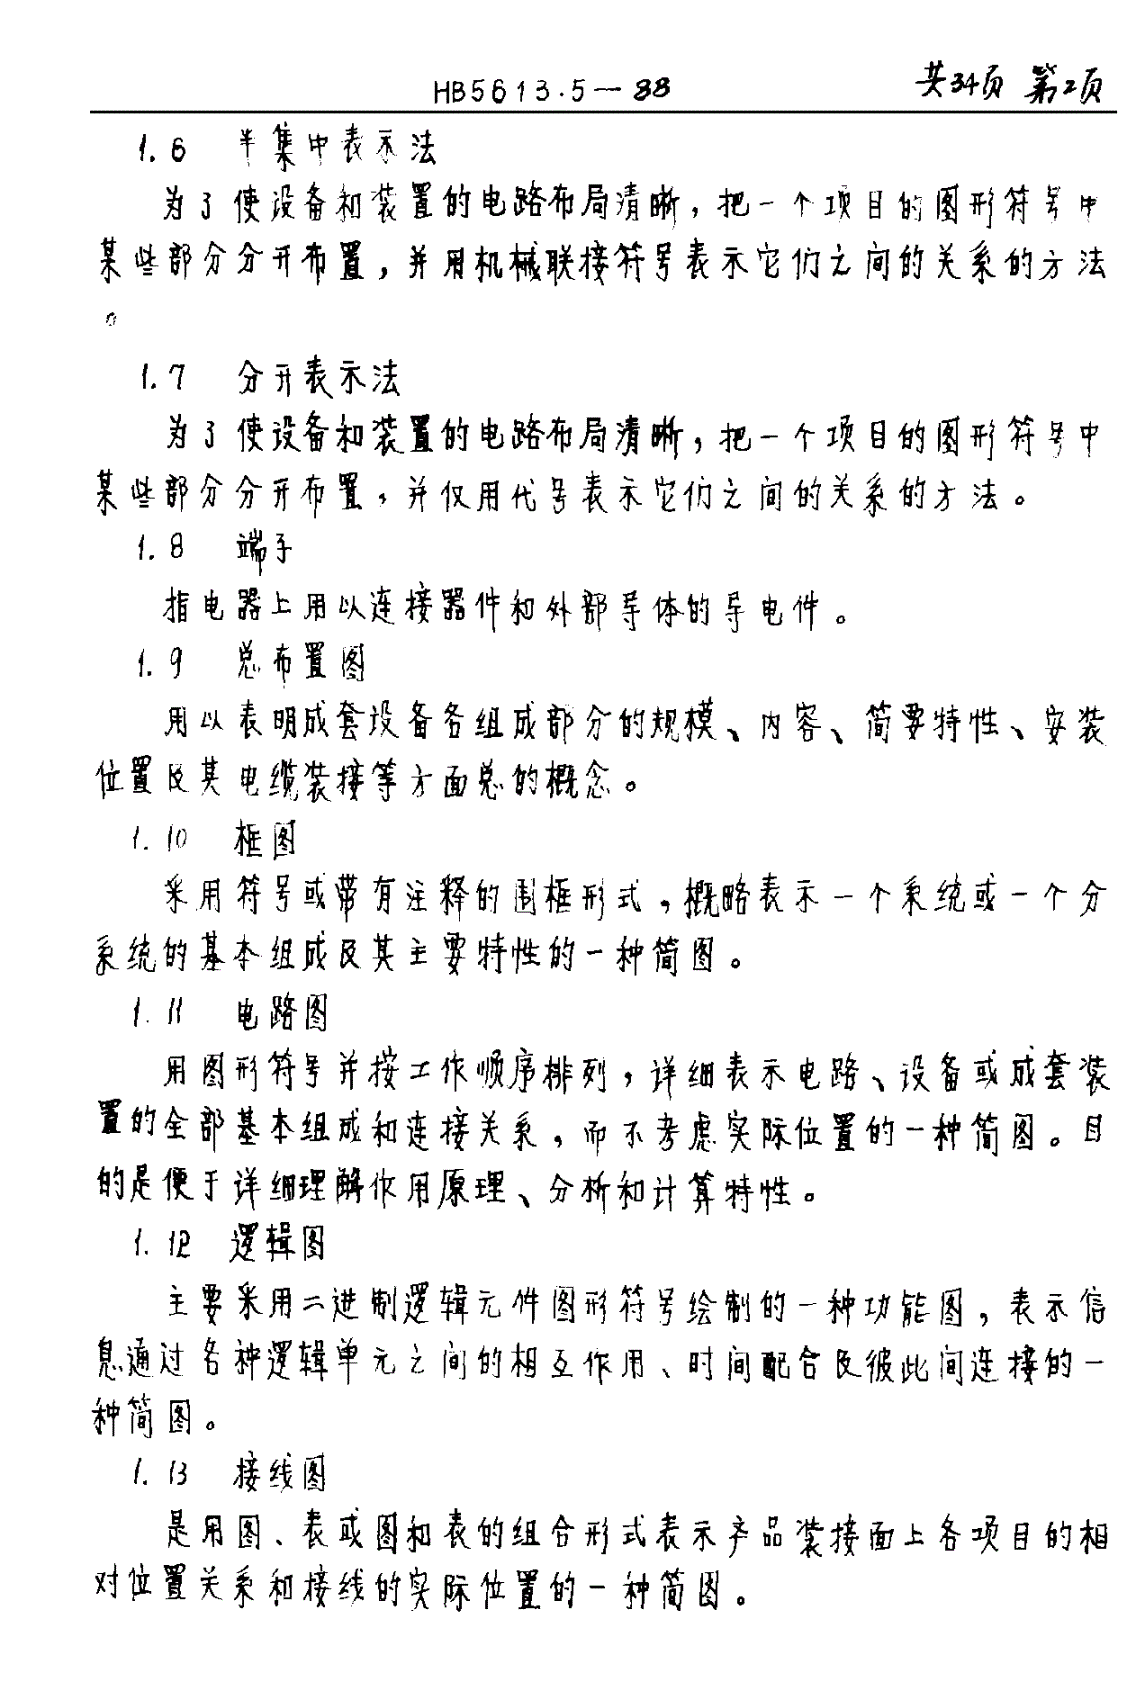 HB5613.5—88 共34页 第2页
1.6 半集中表示法
为了使设备和装置的电路布局清晰，把一个项目的图形符号中
某些部分分开布置，并用机械联接符号表示它们之间的关系的方法
。
1.7 分开表示法
为了使设备和装置的电路布局清晰，把一个项目的图形符号中
某些部分分开布置，并仅用代号表示它们之间的关系的方法。
1.8 端子
指电器上用以连接器件和外部导体的导电件。
1.9 总布置图
用以表明成套设备各组成部分的规模、内容、简要特性、安装
位置及其电缆装接等方面总的概念。
1.10 框图
采用符号或带有注释的围框形式，概略表示一个系统或一个分
系统的基本组成及其主要特性的一种简图。
1.11 电路图
用图形符号并按工作顺序排列，详细表示电路、设备或成套装
置的全部基本组成和连接关系，而不考虑实际位置的一种简图。目
的是便于详细理解作用原理、分析和计算特性。
1.12 逻辑图
主要采用二进制逻辑元件图形符号绘制的一种功能图，表示信
息通过各种逻辑单元之间的相互作用、时间配合及彼此间连接的一
种简图。
1.13 接线图
是用图、表或图和表的组合形式表示产品装接面上各项目的相
对位置关系和接线的实际位置的一种简图。